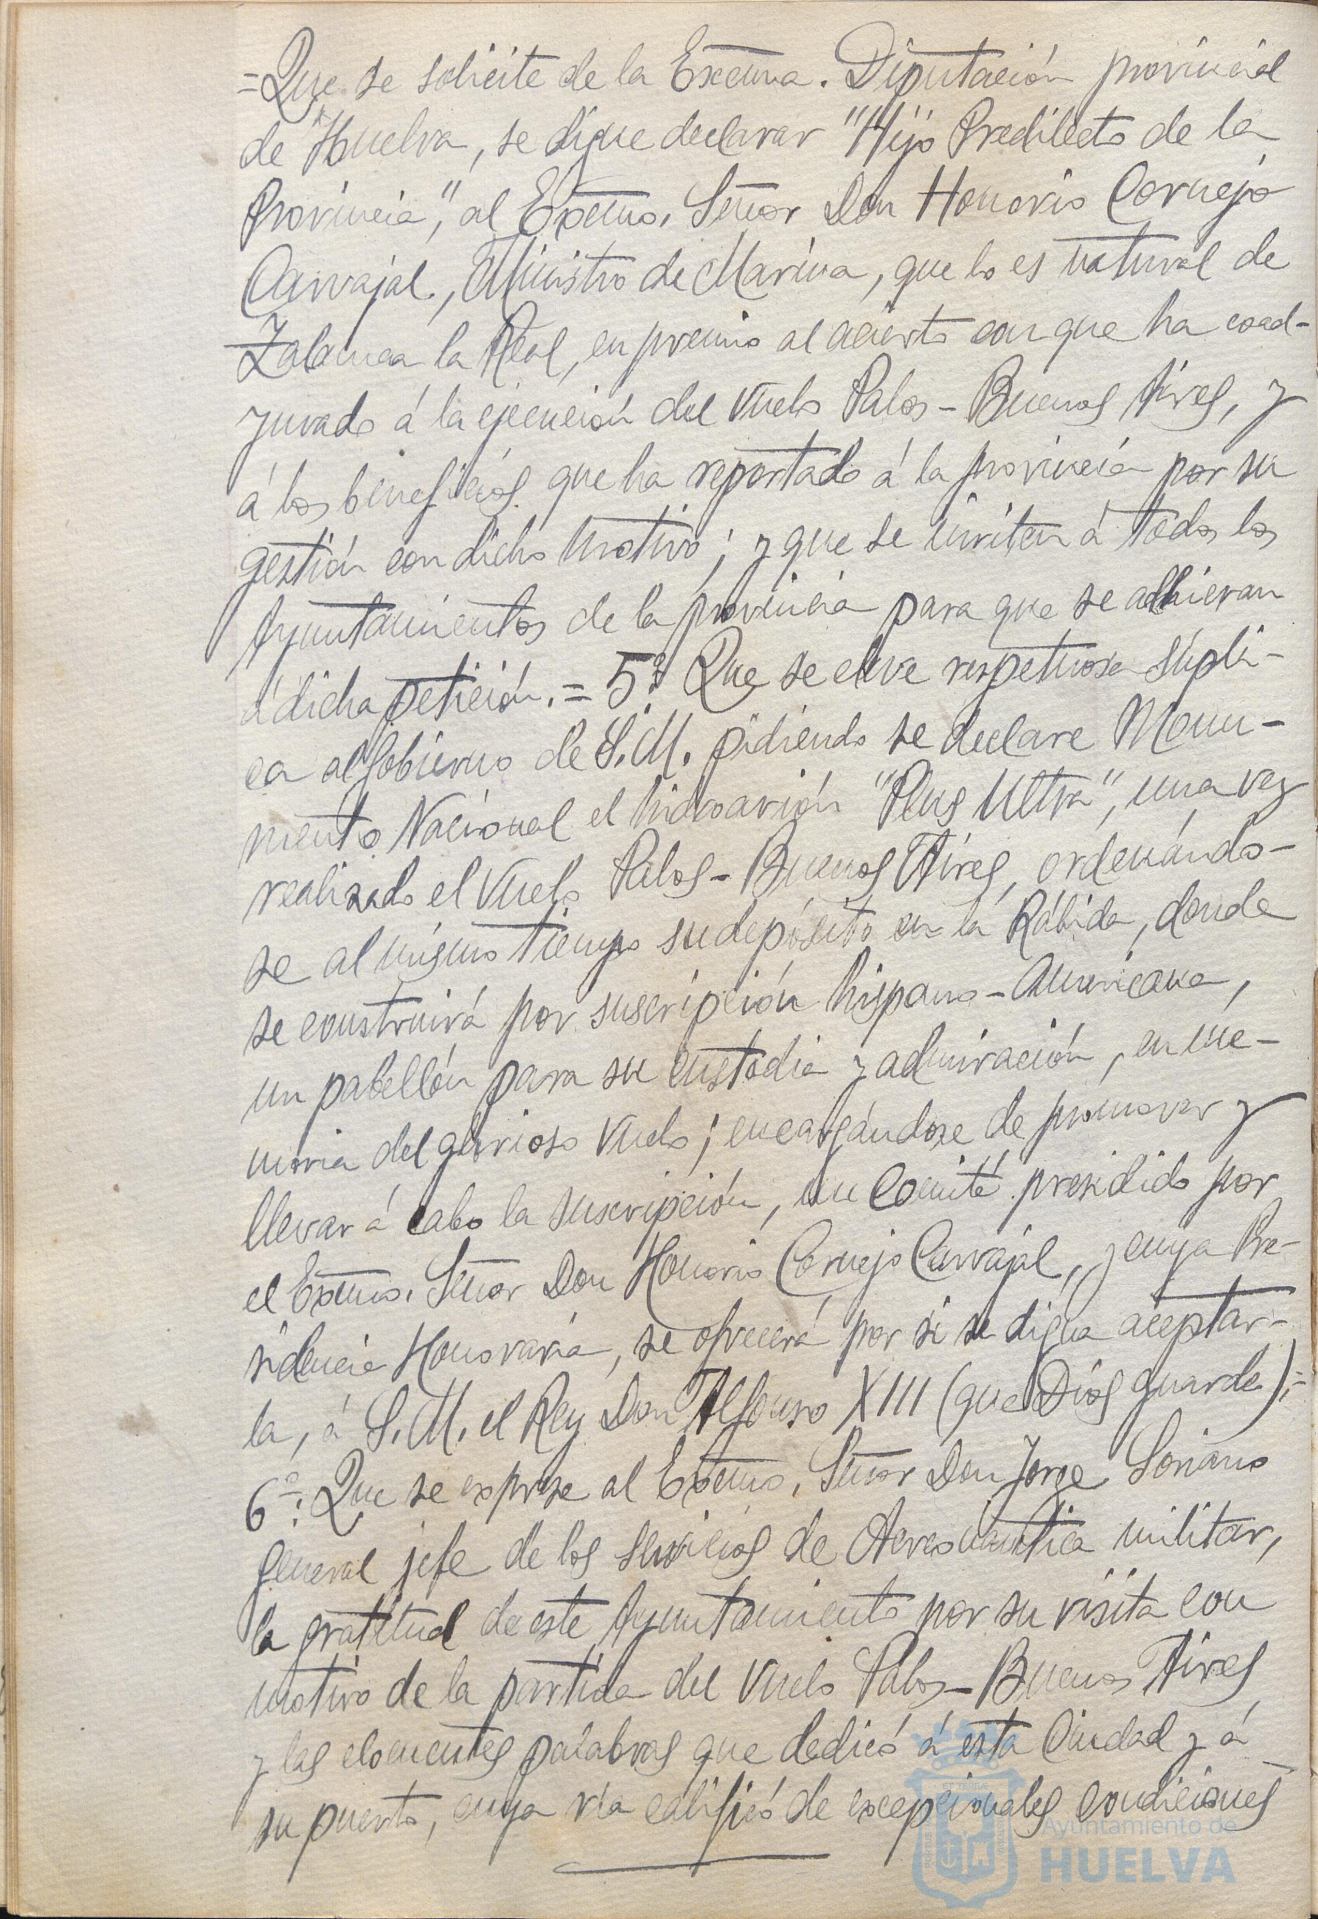 =Que se solicite de la Excma. Diputación provincial
de Huelva, se digne declarar "Hijo Predilecto de la
Provincia", al Excmo. Señor Don Honorio Cornejo
Carvajal., Ministro de Marina, que lo es natural de
Zalamea la Real, en premio al acierto con que ha coad-
yuvado á la ejecución del vuelo Palos-Buenos Aires, y
á los beneficios que ha reportado á la provincia por su
gestión con dicho motivo; y que se inviten á todos los
Ayuntamientos de la provincia para que se adhieran
á dicha petición.= 5º Que se eleve respetuosa súpli-
ca al Gobierno de S.M. pidiendo se declare Monu-
mento Nacional el hidroavión "Plus Ultra", una vez
realizado el vuelo Palos-Buenos Aires, ordenándo-
se al mismo tiempo su depósito en la Rábida, donde
se construirá por suscripción hispano-americana,
un pabellón para su custodia y admiración, en me-
moria del glorioso vuelo; encargándose de promover y
llevar á cabo la suscripción, un Comité presidido por
el Excmo. Señor Don Honorio Cornejo Carvajal, y cuya Pre-
sidencia Honoraria, se ofrecerá por si se digna aceptar-
la, á S.M. el Rey Don Alfonso XIII (que Dios guarde);=
6º: Que se exprese al Excmo. Señor Don Jorge Soriano
general jefe de los servicios de Aeronáutica militar,
la gratitud de este Ayuntamiento por su visita con
motivo de la partida del vuelo Palos-Buenos Aires
y las elocuentes palabras que dedicó á esta Ciudad y á
su puerto, cuya ría calificó de excepcionales condiciones
Ayuntamiento de
HUELVA